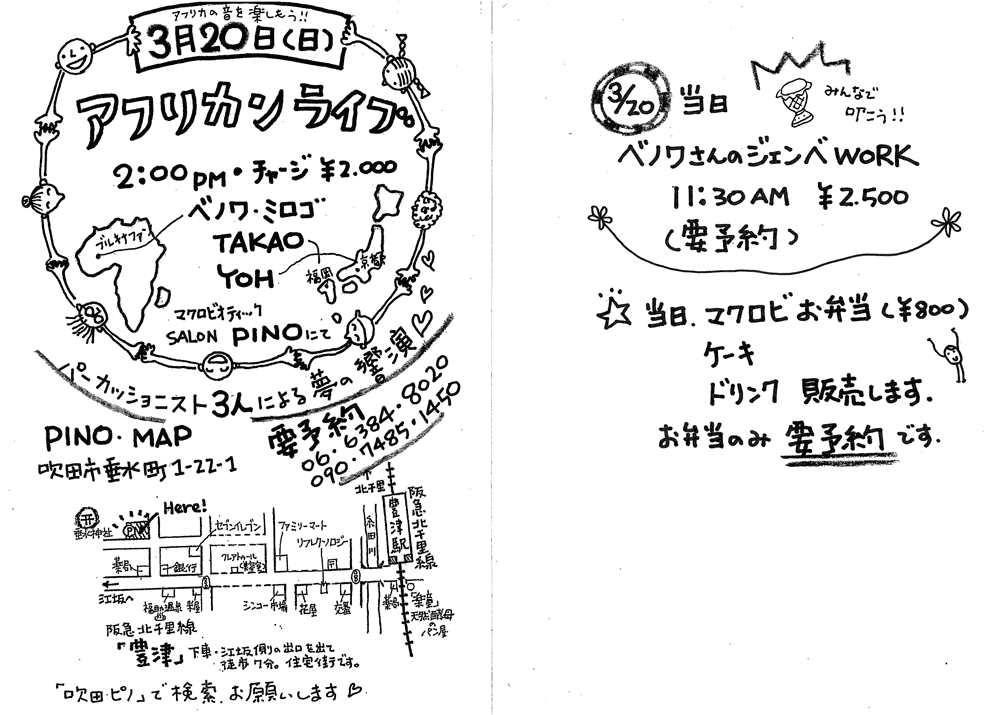 アフリカの音を楽しもう!!
3月20日(日)
アフリカン ライブ
2:00PM・チャージ ¥2.000
ベノワ・ミロゴ
ブルキナファソ
TAKAO
福岡
京都
YOH
マクロビオティック
SALON PINOにて
パーカッショニスト3人による夢の響演
要予約
06・6384・8020
090・7485・1450
PINO・MAP
吹田市垂水町1-22-1
Here!
垂水神社
セブンイレブン
ファミリーマート
リフレクソロジー
糸田川
北千里
豊津駅
阪急北千里線
薬局
銀行
江坂へ
米屋
シンコー市場
花屋
交番
薬局
「楽童」
天然酵母
の
パン屋
阪急北千里線
「豊津」下車・江坂側の出口を出て
徒歩7分。住宅街です。
「吹田・ピノ」で検索、お願いします
3/20 当日
みんなで
叩こう!!
ベノワさんのジェンベWORK
11:30AM ¥2.500
(要予約)
当日、マクロビお弁当(¥800)
ケーキ
ドリンク 販売します.
お弁当のみ 要予約 です.